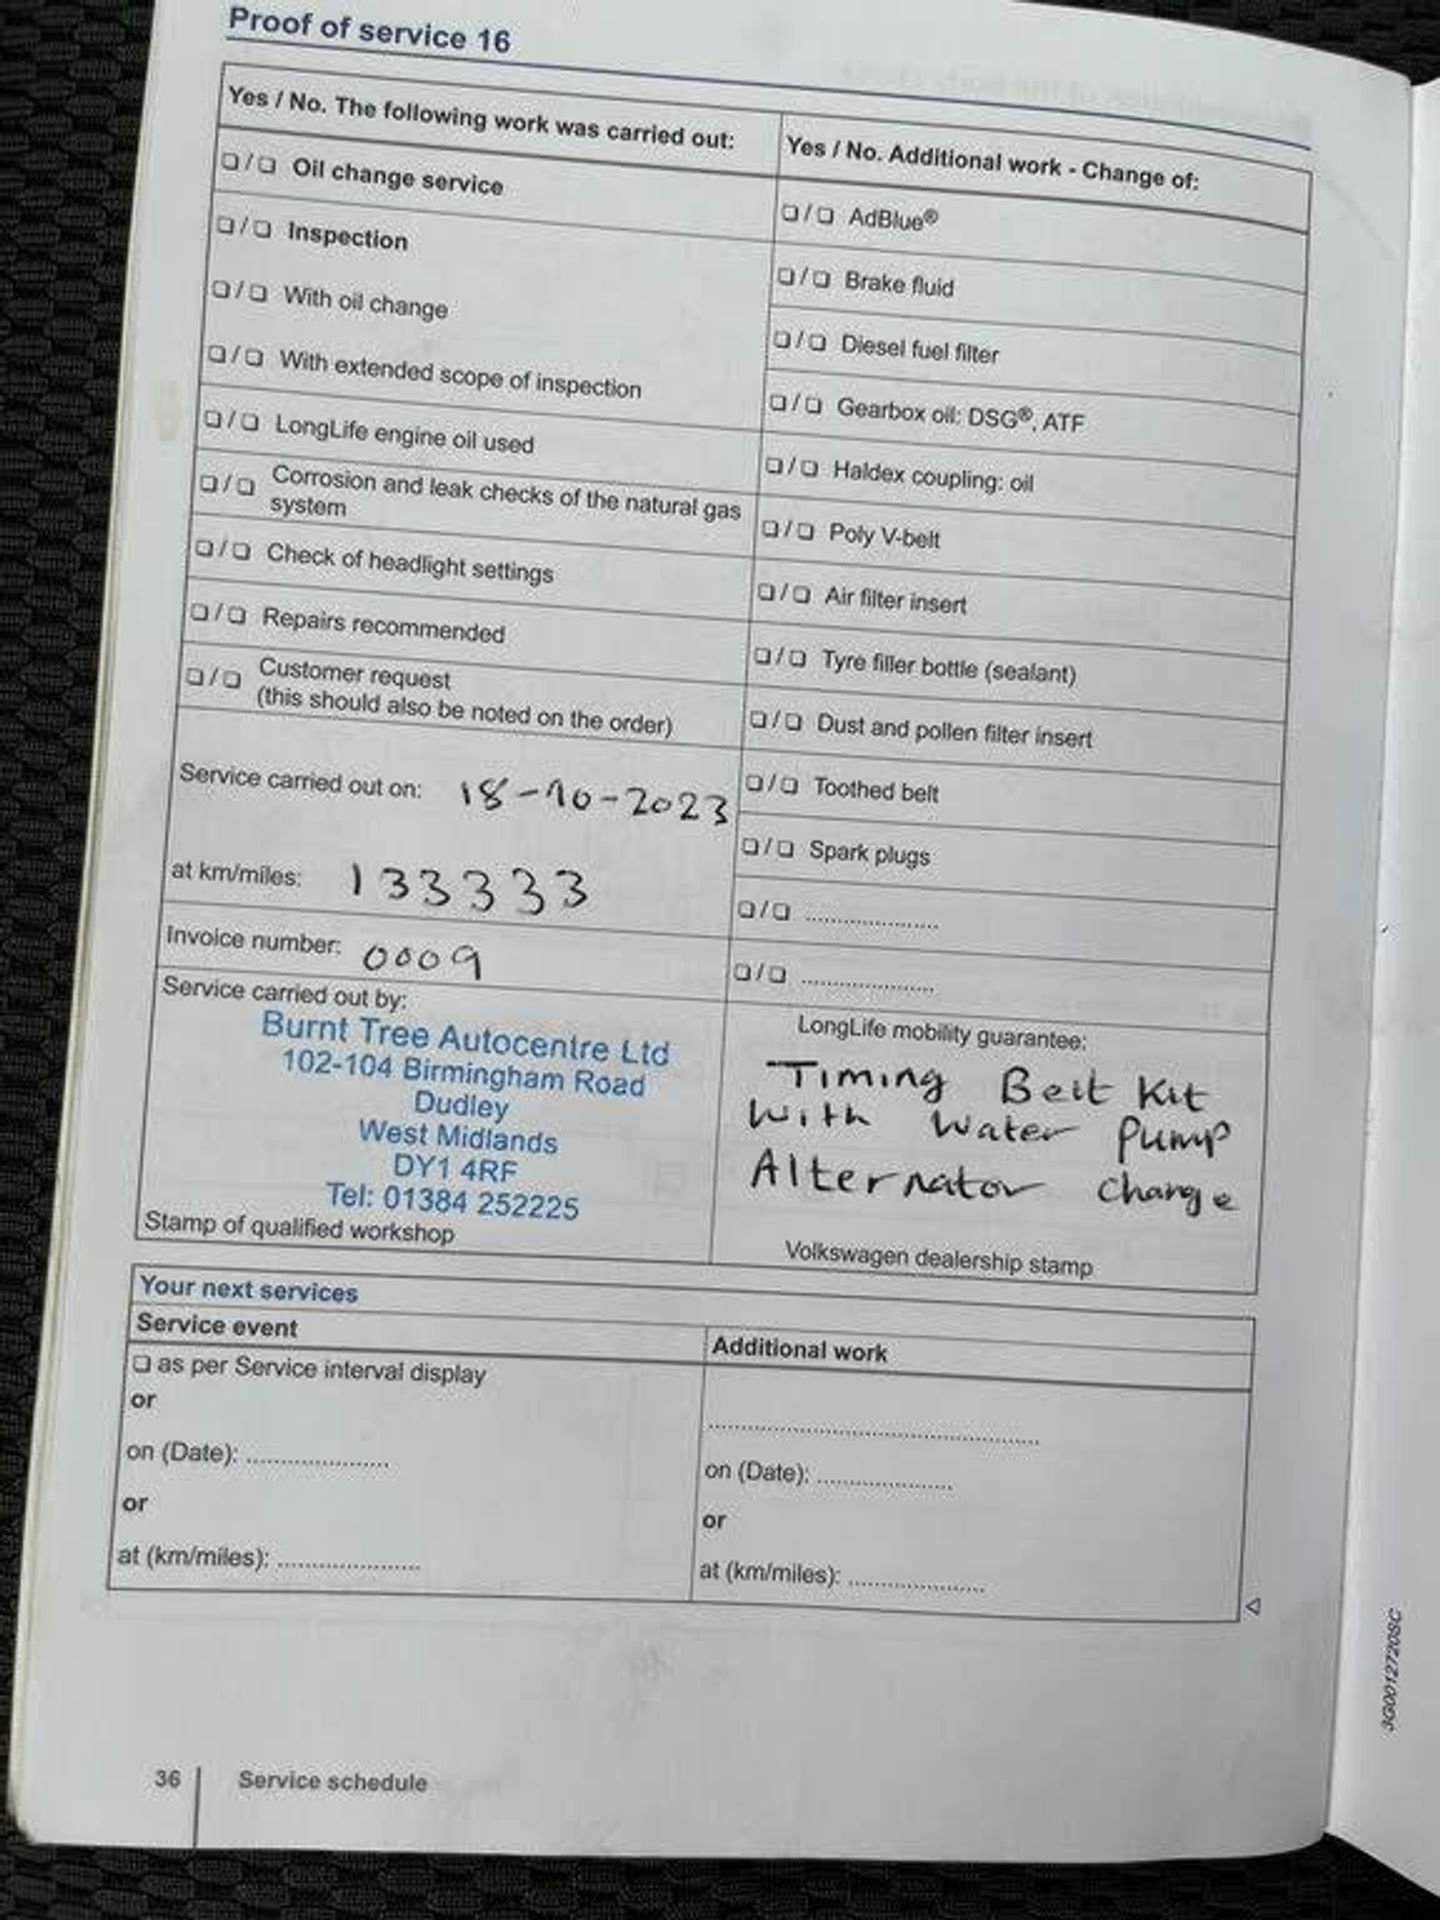 Proof of service 16
Yes / No. The following work was carried out:
❏ / ❏ Oil change service
❏ / ❏ Inspection
❏ / ❏ With oil change
❏ / ❏ With extended scope of inspection
❏ / ❏ LongLife engine oil used
❏ / ❏ Corrosion and leak checks of the natural gas
system
❏ / ❏ Check of headlight settings
❏ / ❏ Repairs recommended
❏ / ❏ Customer request
(this should also be noted on the order)
Service carried out on: 18-10-2023
at km/miles: 133333
Invoice number: 0009
Service carried out by:
Burnt Tree Autocentre Ltd
102-104 Birmingham Road
Dudley
West Midlands
DY1 4RF
Tel: 01384 252225
Stamp of qualified workshop
Yes / No. Additional work - Change of:
❏ / ❏ AdBlue®
❏ / ❏ Brake fluid
❏ / ❏ Diesel fuel filter
❏ / ❏ Gearbox oil: DSG®, ATF
❏ / ❏ Haldex coupling: oil
❏ / ❏ Poly V-belt
❏ / ❏ Air filter insert
❏ / ❏ Tyre filler bottle (sealant)
❏ / ❏ Dust and pollen filter insert
❏ / ❏ Toothed belt
❏ / ❏ Spark plugs
❏ / ❏ ......................
❏ / ❏ ......................
LongLife mobility guarantee:
Timing Belt Kit
With Water Pump
Alternator change
Volkswagen dealership stamp
Your next services
Service event
❏ as per Service interval display
or
on (Date): ......................
or
at (km/miles): ......................
Additional work
......................................................
on (Date): ......................
or
at (km/miles): ......................
36 Service schedule
3G0012720SC